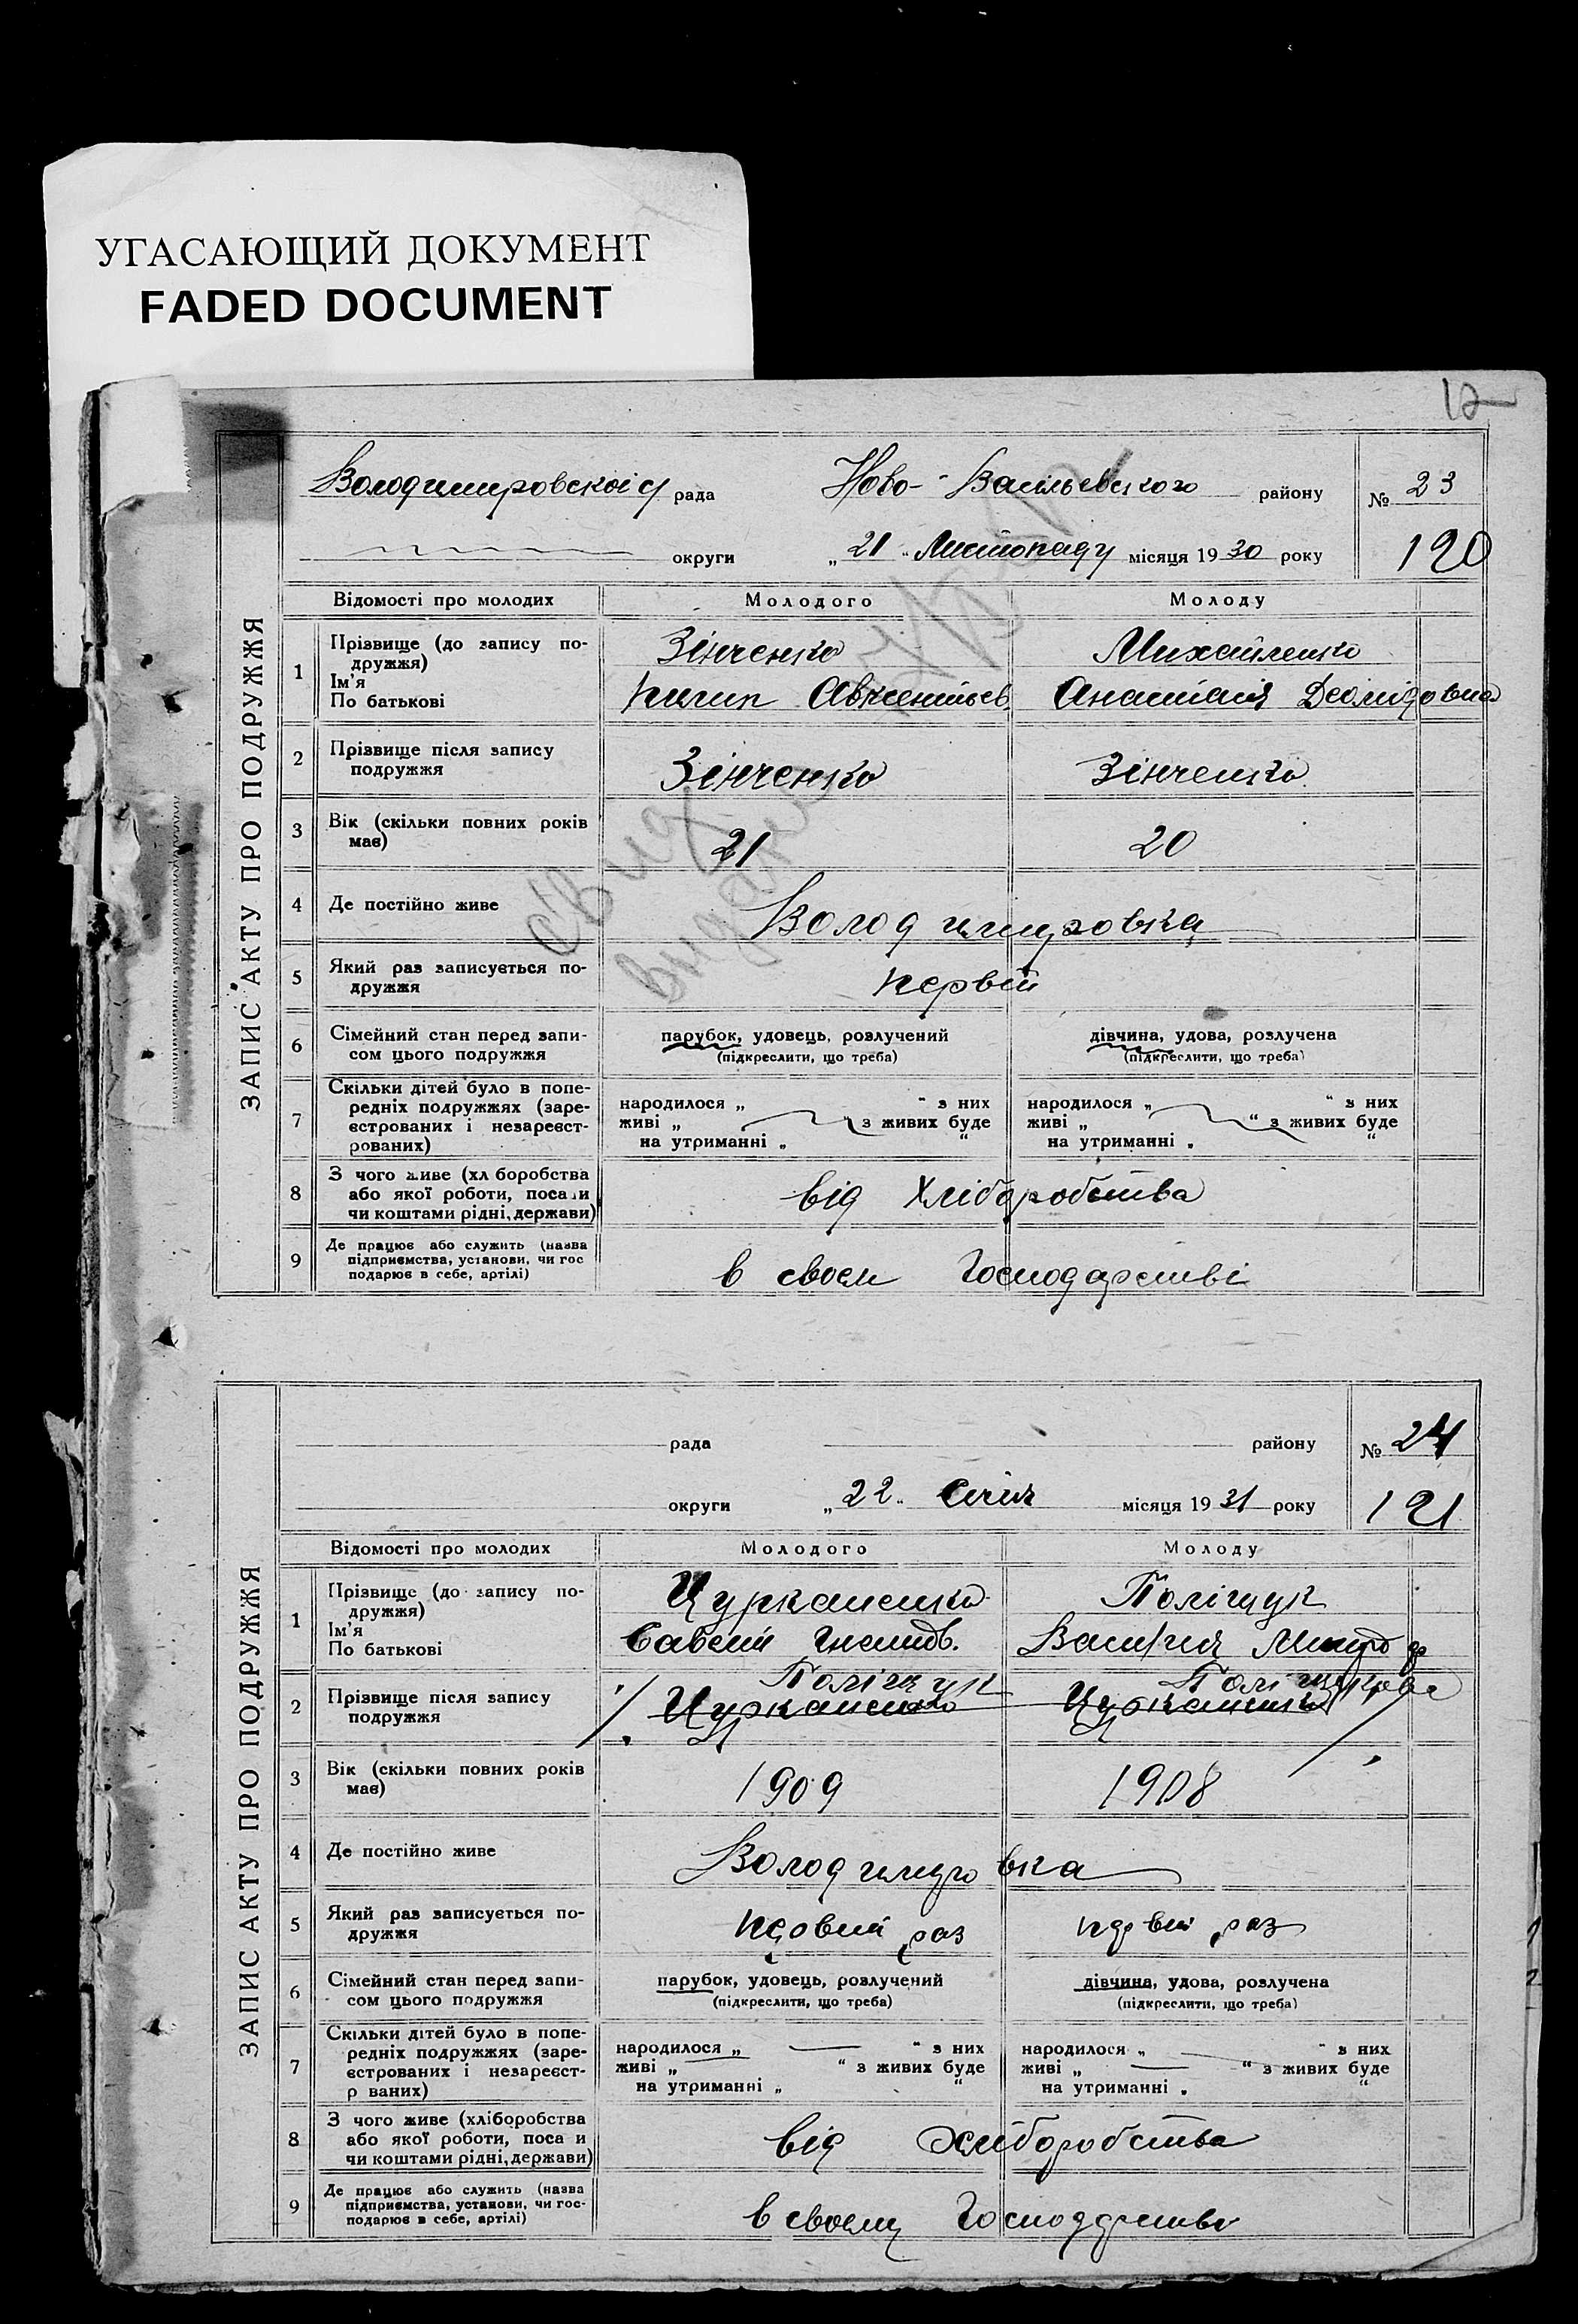 УГАСАЮЩИЙ ДОКУМЕНТ
FADED DOCUMENT
12
ЗАПИС АКТУ ПРО ПОДРУЖЖЯ
Володимировскоі с/ рада Ново-Васильевского району № 23
округи „21" Листопаду місяця 1930 року 120
Відомості про молодих Молодого Молоду
1 Прізвище (до запису по-
дружжя)
Ім'я
По батькові
Зінченко Михайленко
Пилип Авксентьев. Анастасія Деомідовна
2 Прізвище після запису
подружжя
Зінченко Зінченко
3 Вік (скільки повних років
має)
21 20
4 Де постійно живе
Володимировка
5 Який раз записується по-
дружжя
первий
6 Сімейний стан перед запи-
сом цього подружжя
парубок, удовець, розлучений дівчина, удова, розлучена
(підкреслити, що треба) (підкреслити, що треба)
7 Скільки дітей було в попе-
редніх подружжях (заре-
єстрованих і незареєст-
рованих)
народилося „ " з них народилося „ " з них
живі „ " з живих буде живі „ " з живих буде
на утриманні „ " на утриманні „ "
8 З чого живе (хл боробства
або якої роботи, посади
чи коштами рідні, держави)
від Хліборобства
9 Де працює або служить (назва
підприємства, установи, чи гос
подарює в себе, артілі)
в своем Господарстві
Свид
видано
ЗАПИС АКТУ ПРО ПОДРУЖЖЯ
рада району № 24
округи „22" Січня місяця 1931 року 121
Відомості про молодих Молодого Молоду
1 Прізвище (до запису по-
дружжя)
Ім'я
По батькові
Цурканенко Поліщук
Савелій Василия
2 Прізвище після запису
подружжя
Поліщук Поліщукова
Цурканенко Цурканенко
3 Вік (скільки повних років
має)
1909 1908
4 Де постійно живе
Володимировка
5 Який раз записується по-
дружжя
первий раз первий раз
6 Сімейний стан перед запи-
сом цього подружжя
парубок, удовець, розлучений дівчина, удова, розлучена
(підкреслити, що треба) (підкреслити, що треба)
7 Скільки дітей було в попе-
редніх подружжях (заре-
єстрованих і незареєст-
р ваних)
народилося „ " з них народилося „ " з них
живі „ " з живих буде живі „ " з живих буде
на утриманні „ " на утриманні „ "
8 З чого живе (хліборобства
або якої роботи, поса и
чи коштами рідні, держави)
від Хліборобства
9 Де працює або служить (назва
підприємства, установи, чи гос-
подарює в себе, артілі)
в своему Господарстві